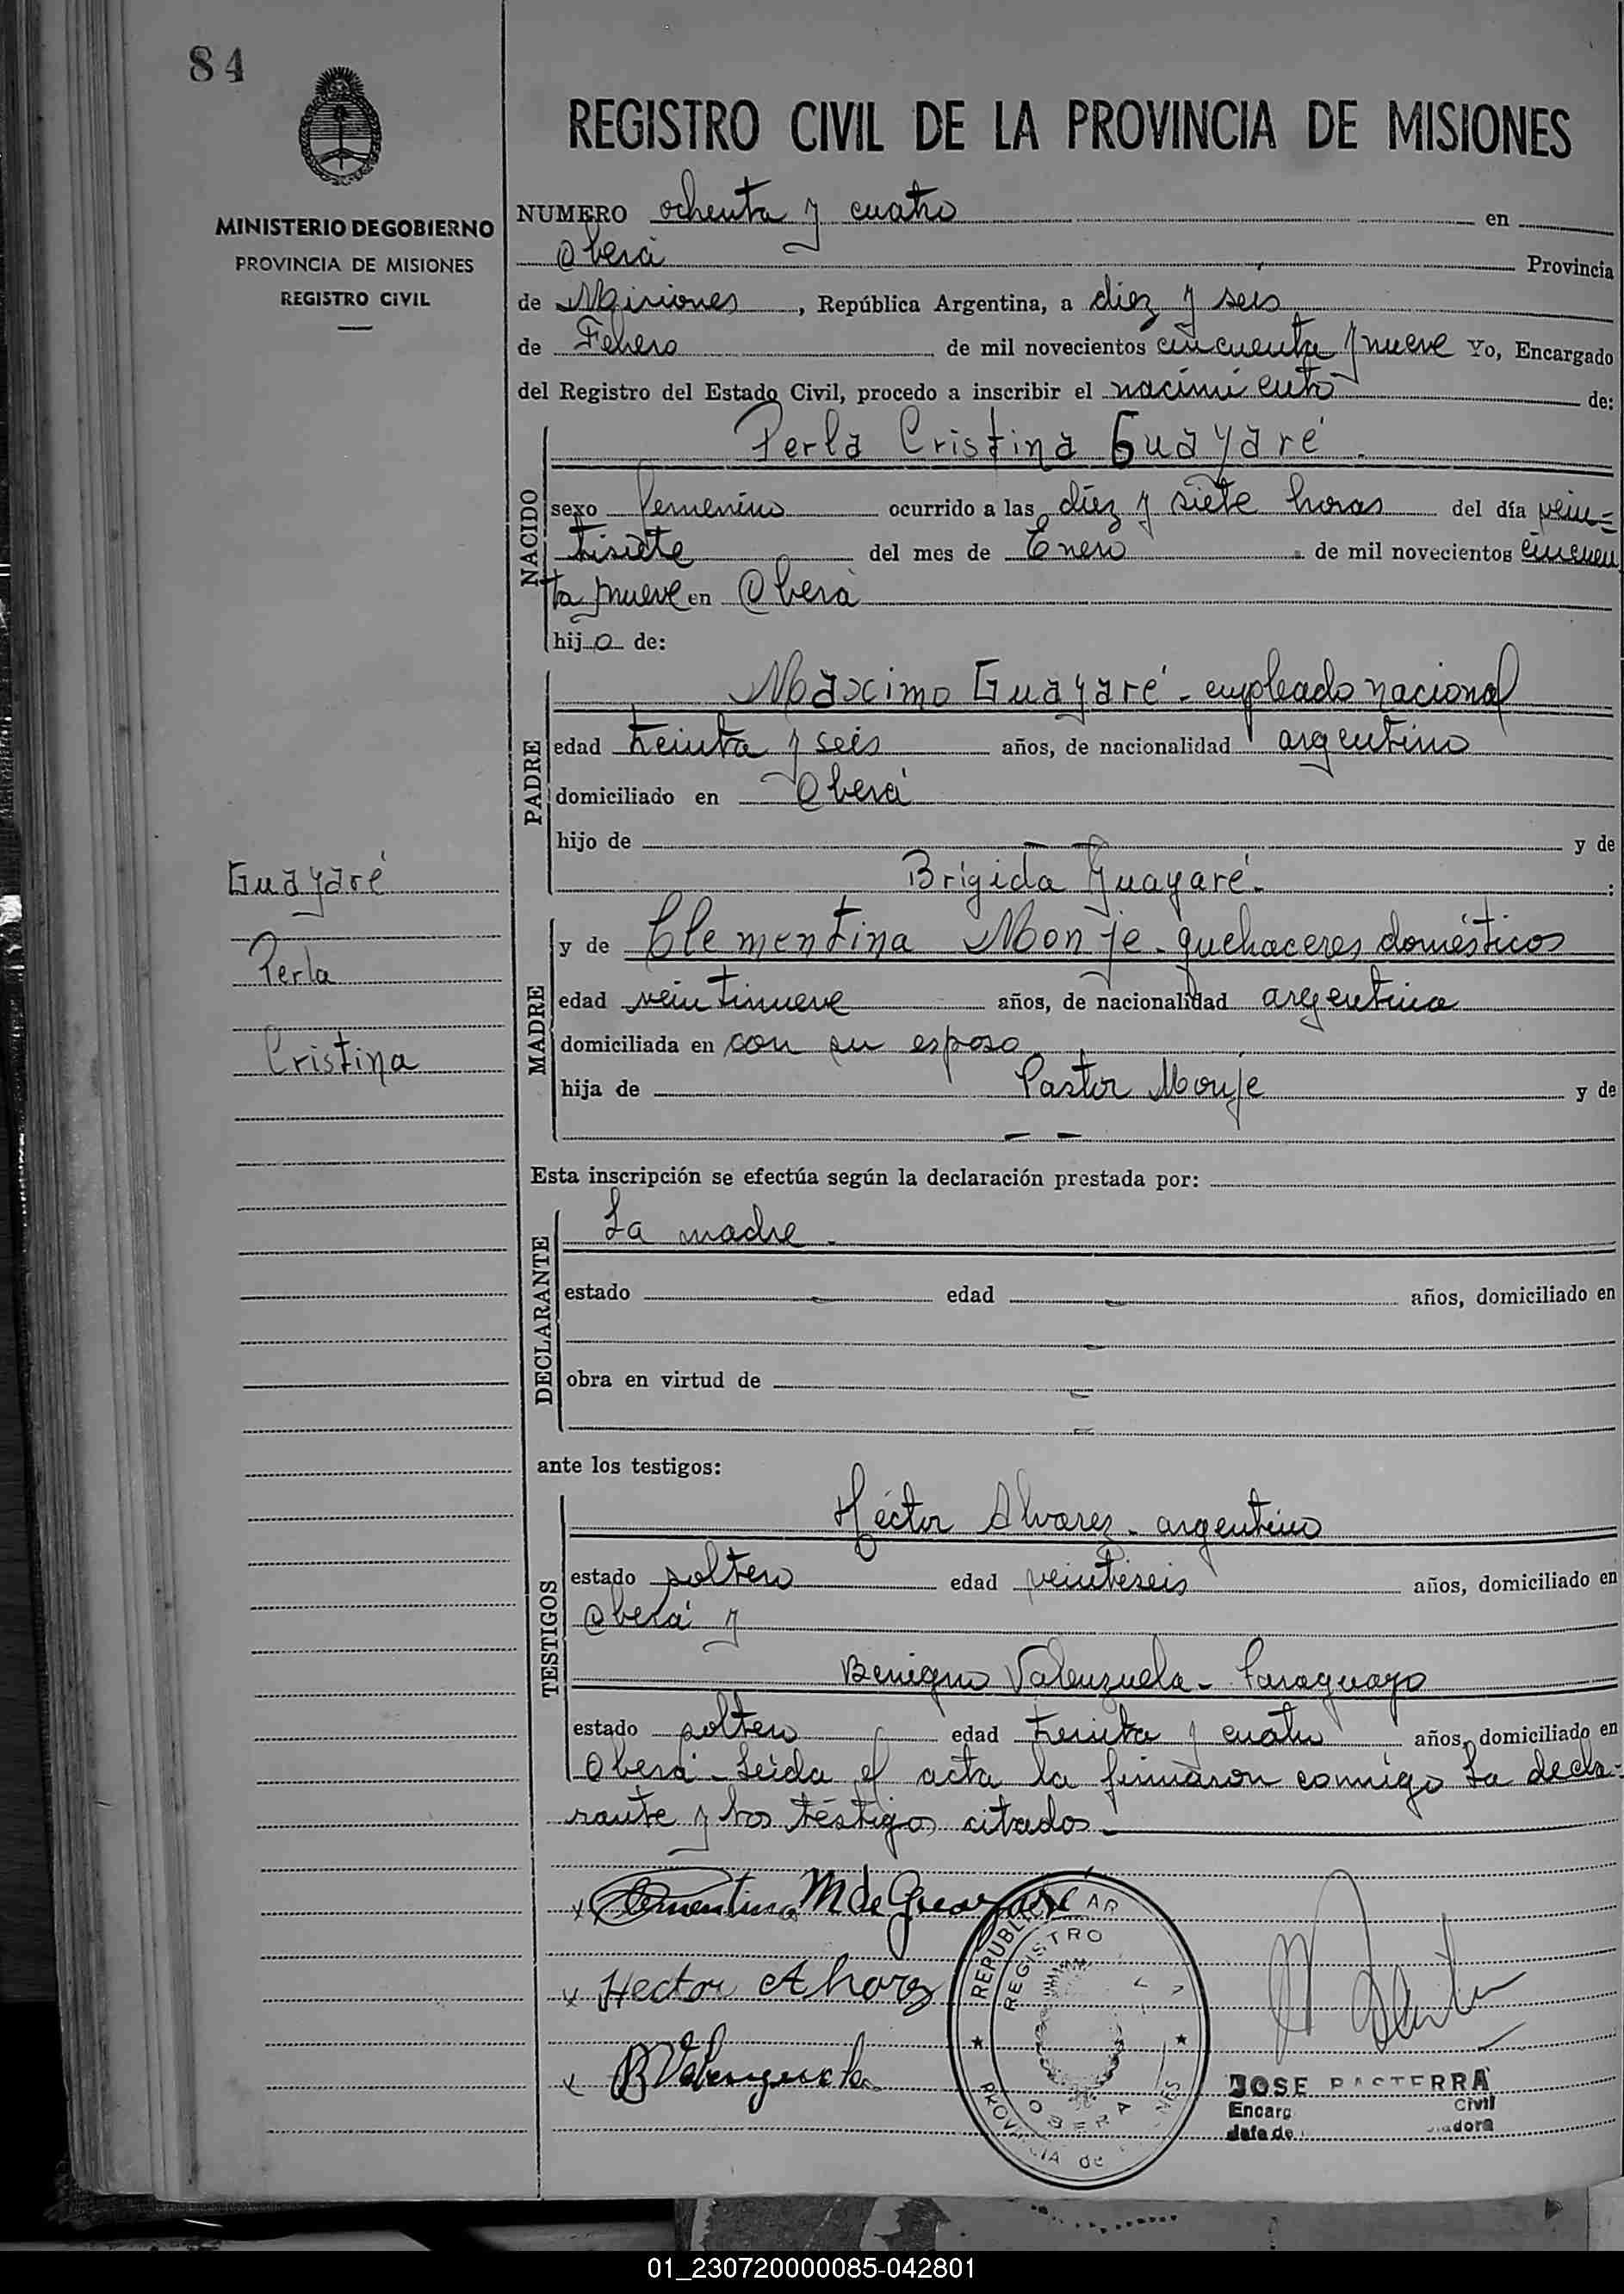 84
MINISTERIO DE GOBIERNO
PROVINCIA DE MISIONES
REGISTRO CIVIL
REGISTRO CIVIL DE LA PROVINCIA DE MISIONES
NUMERO ochenta y cuatro en
Oberá Provincia
de Misiones, República Argentina, a diez y seis
de Febrero de mil novecientos cincuenta y nueve Yo, Encargado
del Registro del Estado Civil, procedo a inscribir el nacimiento de:
NACIDO
Perla Cristina Guayaré.
sexo femenino ocurrido a las diez y siete horas del día vein=
tisiete del mes de Enero de mil novecientos cincuen
ta y nueve en Oberá
hija de:
PADRE
Máximo Guayaré - empleado nacional
edad treinta y seis años, de nacionalidad argentino
domiciliado en Oberá
hijo de — — y de
Brígida Guayaré.- :
Guayaré
Perla
Cristina
MADRE
y de Clementina Monje - quehaceres domésticos
edad veintinueve años, de nacionalidad argentina
domiciliada en con su esposo
hija de Pastor Monje y de
— —
Esta inscripción se efectúa según la declaración prestada por:
DECLARANTE
La madre.
estado — edad — años, domiciliado en
—
obra en virtud de —
—
ante los testigos:
TESTIGOS
Héctor Alvarez - argentino
estado soltero edad veintiseis años, domiciliado en
Oberá y
Benigno Valenzuela - Paraguayo
estado soltero edad treinta y cuatro años, domiciliado en
Oberá - Leída el acta la firmaron conmigo la decla=
rante y los testigos citados.-
x Clementina M de Guayaré
x Hector Alvarez
x B Valenzuela
REPUBLICA AR
REGISTRO
OBERA
PROVINCIA de NES
JOSE BASTERRA
Encarg Civil
Jefe de adora
01_230720000085-042801